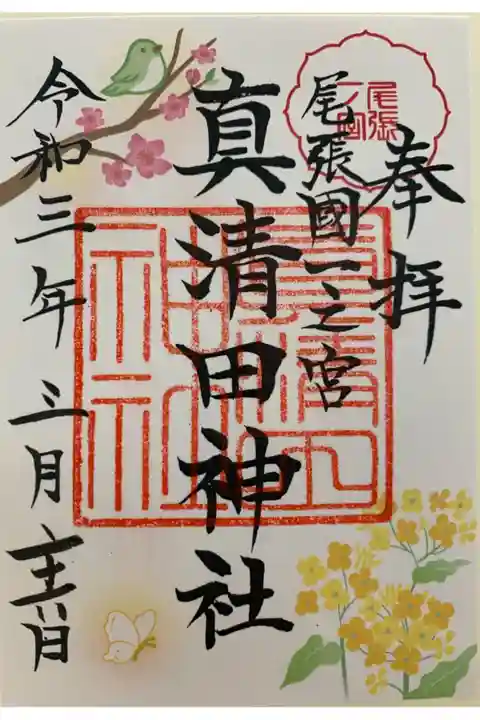 奉拝
尾張國一之宮
真清田神社
令和三年三月廿八日
尾張
一ノ宮
真清田
神社